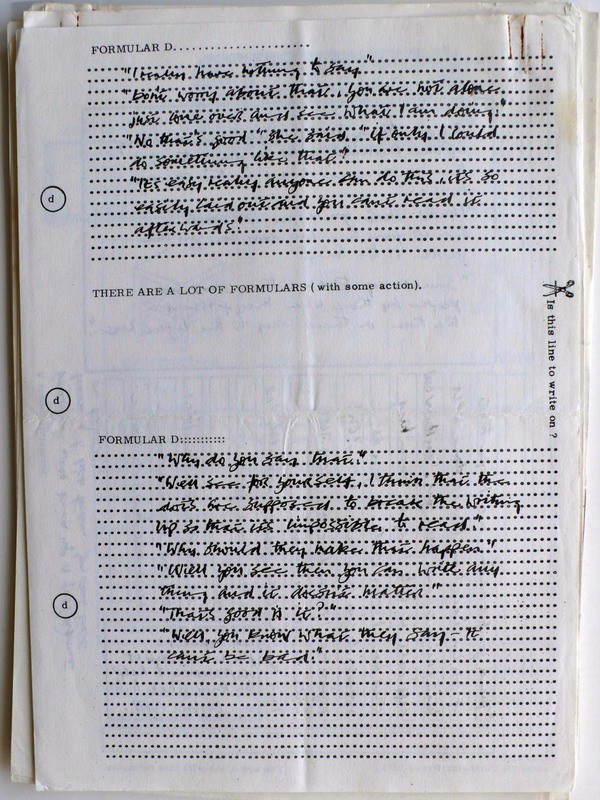 FORMULAR D......................
"I really have nothing to say"
"Dont worry about that, you are not alone
just come over and see what I am doing."
"No that's good" she said "if only I could
do something like that."
"It's easy really anyone can do this, it's so
easily laid out and you can't read it
afterwards."
d
THERE ARE A LOT OF FORMULARS (with some action).
Is this line to write on ?
d
FORMULAR D:::::::::::
"Why do you say that."
"Well see for yourself, I think that the
dots are supposed to break the writing
up so that it's impossible to read."
"Why should they make that happen."
"Well you see then you can write any
thing and it doesn't matter."
d
"That's good is it?"
"Well you know what they say - it
can't be bad."